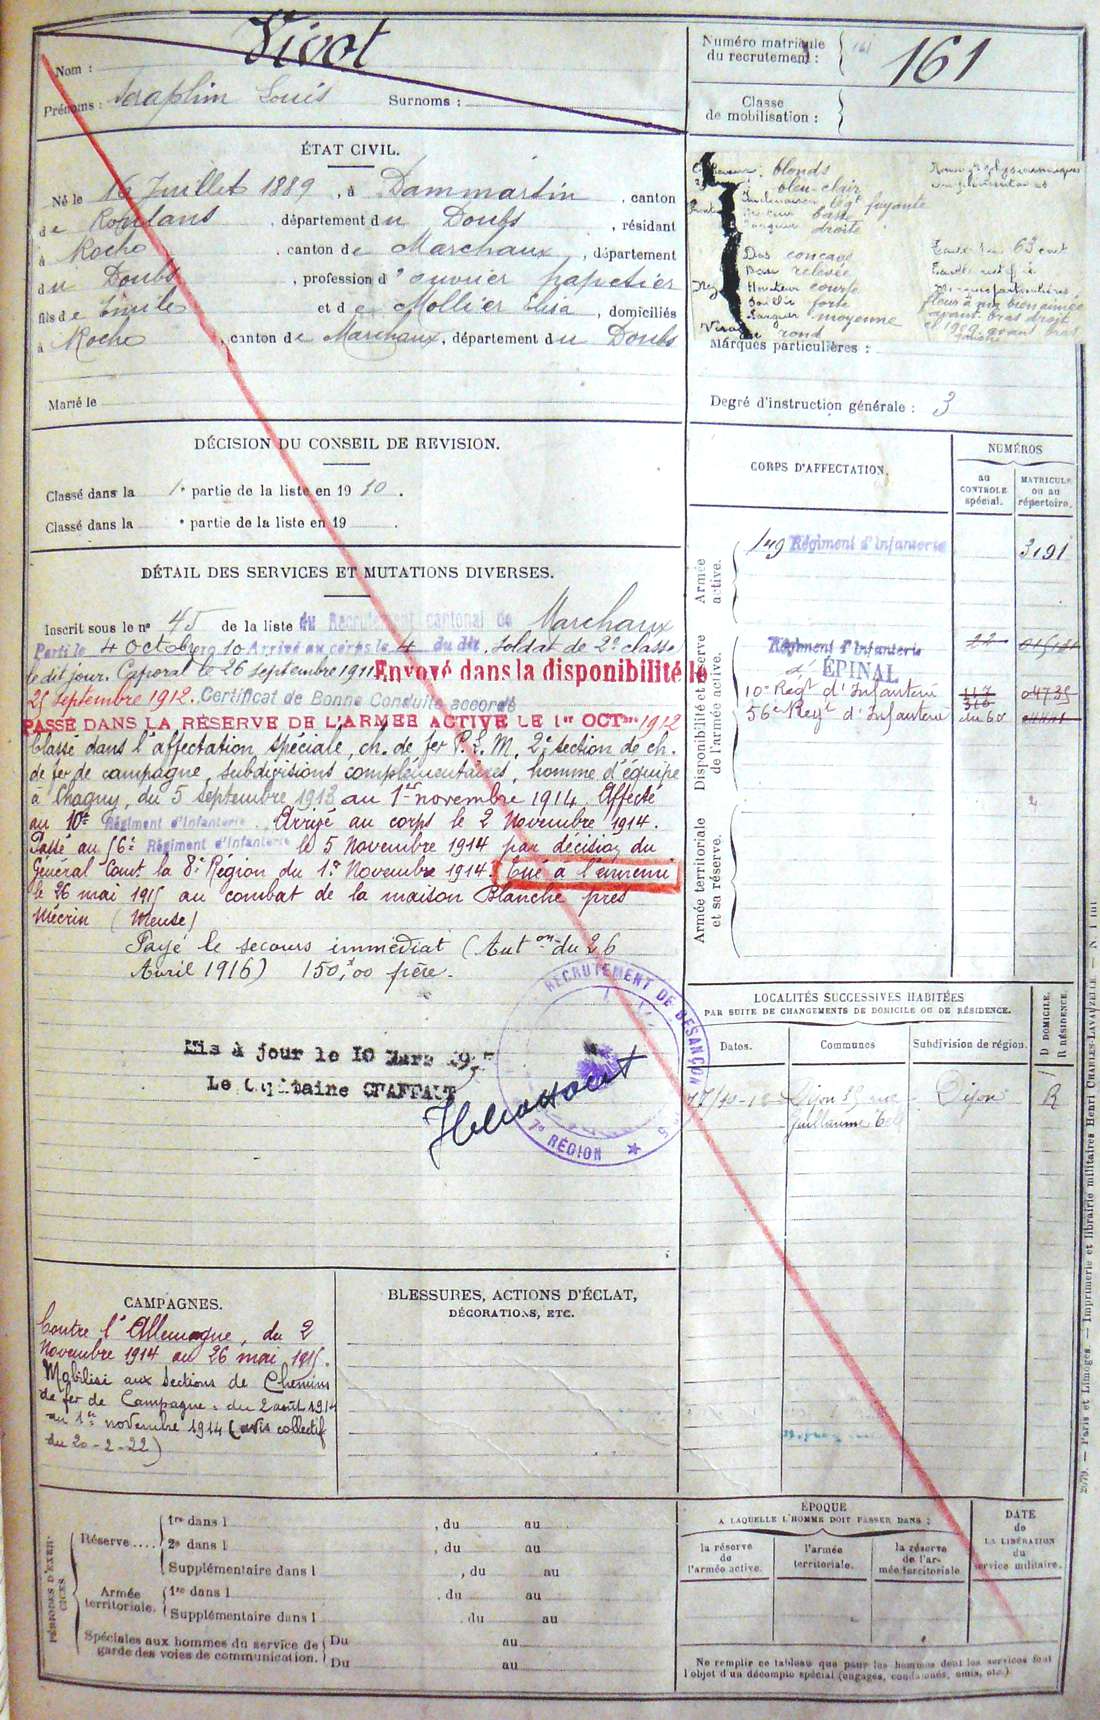 Vivot
Nom :
Prénoms : Séraphin Louis Surnoms :
Numéro matricule
du recrutement : 161
Classe
de mobilisation :
ÉTAT CIVIL.
Né le 16 Juillet 1889, à Dammartin, canton
de Roulans, département du Doubs, résidant
à Roche, canton de Marchaux, département
du Doubs, profession d'ouvrier papetier
fils de Emile et de Mollier Elisa, domiciliés
à Roche, canton de Marchaux, département du Doubs
Marié le
blonds
bleu clair
légt fuyante
base
droite
Dos concave
Base relevée
Hauteur courte
Saillie forte
Largeur moyenne
rond
Marques particulières :
Degré d'instruction générale : 3
DÉCISION DU CONSEIL DE REVISION.
Classé dans la 1e partie de la liste en 1910.
Classé dans la e partie de la liste en 19 .
DÉTAIL DES SERVICES ET MUTATIONS DIVERSES.
Inscrit sous le no 45 de la liste du Recrutement cantonal de Marchaux
Parti le 4 Octobre 10 Arrivé au corps le 4 du dit, soldat de 2e classe
le dit jour. Caporal le 26 septembre 1911 Envoyé dans la disponibilité le
25 septembre 1912. Certificat de Bonne Conduite accordé
PASSÉ DANS LA RÉSERVE DE L'ARMÉE ACTIVE LE 1er OCTbre 1912
Classé dans l'affectation spéciale, ch. de fer P.L.M. 2e section de ch.
de fer de campagne, subdivisions complémentaires, homme d'équipe
à Chagny, du 5 septembre 1913 au 1er novembre 1914. Affecté
au 10e Régiment d'Infanterie. Arrivé au corps le 2 Novembre 1914.
Passé au 56e Régiment d'Infanterie le 5 Novembre 1914 par décision du
Général Comt la 8e Région du 1er Novembre 1914. Tué à l'ennemi
le 26 mai 1915 au combat de la maison Blanche près
Mécrin (Meuse)
Payé le secours immédiat (Auton du 26
Avril 1916) 150,00 père.
Mis à jour le 10 Mars
Le Capitaine
RECRUTEMENT DE BESANÇON
7e RÉGION
CORPS D'AFFECTATION.
NUMÉROS
au
CONTROLE
spécial.
MATRICULE
ou au
répertoire.
Armée
active.
149 Régiment d'Infanterie 3191
Disponibilité et réserve
de l'armée active.
Régiment d'Infanterie
d'ÉPINAL
10e Régt d'Infanterie 04735
56e Régt d'Infanterie
Armée territoriale
et sa réserve.
LOCALITÉS SUCCESSIVES HABITÉES
PAR SUITE DE CHANGEMENTS DE DOMICILE OU DE RÉSIDENCE.
Dates.
Communes
Subdivision de région.
D DOMICILE.
R RÉSIDENCE.
Dijon rue Dijon R
Guillaume Tell
CAMPAGNES.
Contre l'Allemagne, du 2
Novembre 1914 au 26 mai 1915.
Mobilisé aux Sections de Chemins
de fer de Campagne : du 2 août 1914
au 1er novembre 1914 (avis collectif
du 20-2-22)
BLESSURES, ACTIONS D'ÉCLAT,
DÉCORATIONS, ETC.
PÉRIODES D'EXERCICES
Réserve....
1re dans l , du au
2e dans l , du au
Supplémentaire dans l , du au
Armée
territoriale.
1re dans l , du au
Supplémentaire dans l , du au
Spéciales aux hommes du service de
garde des voies de communication.
Du au
Du au
ÉPOQUE
A LAQUELLE L'HOMME DOIT PASSER DANS :
la réserve
de
l'armée active.
l'armée
territoriale.
la réserve
de l'ar-
mée territoriale
DATE
de
LA LIBÉRATION
du
service militaire.
Ne remplir ce tableau que pour les hommes dont les services font
l'objet d'un décompte spécial (engagés, condamnés, omis, etc.)
Paris et Limoges. — Imprimerie et librairie militaires Henri CHARLES-LAVAUZELLE